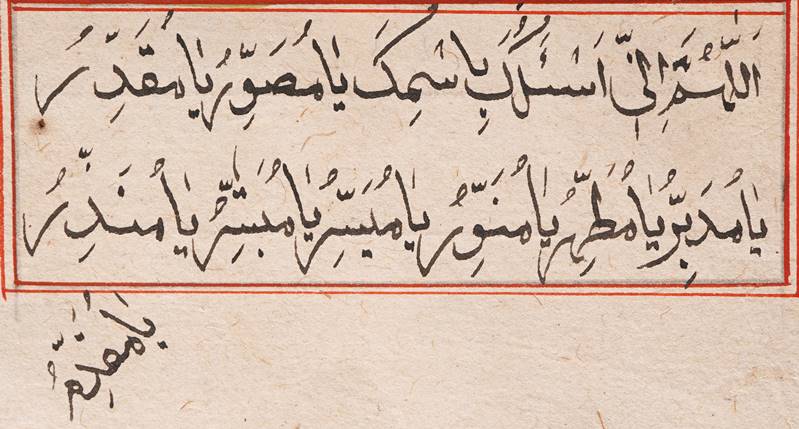 اَللّٰهُمَّ اِنّىِ اَسْئَلُكَ بِاسْمِكَ يٰا مُصَوِّرُ يٰا مُقَدِّرُ
يٰا مُدَبِّرُ يٰا مُطَهِّرُ يٰا مُنَوِّرُ يٰا مُيَسِّرُ يٰا مُبَشِّرُ يٰا مُنَذِّرُ
يٰا مُقَدِّمُ